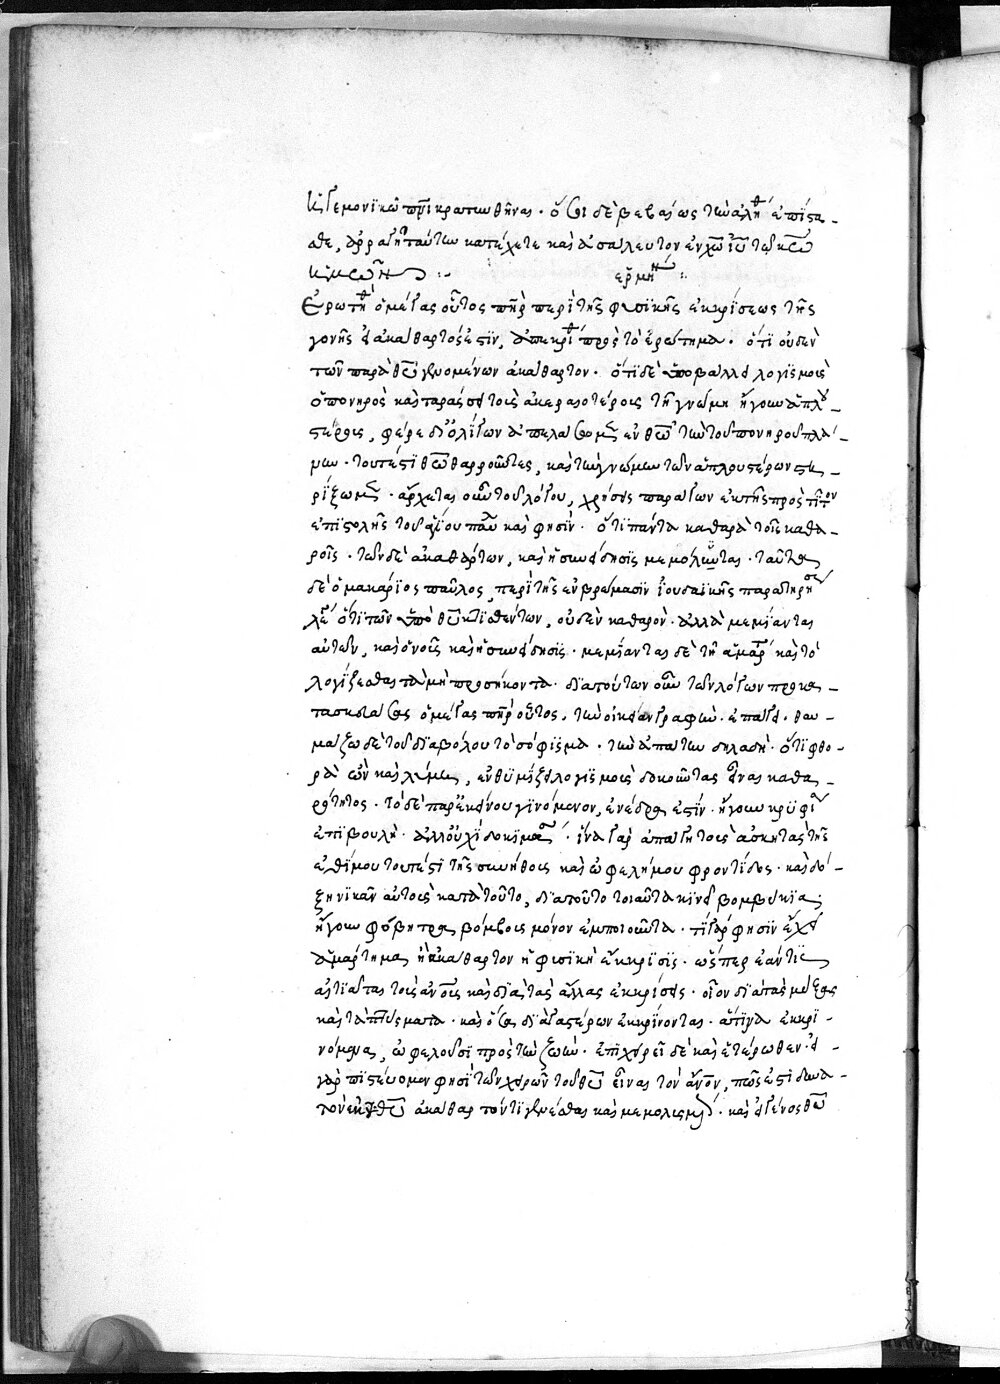 ἡγεμονικῷ πνι κρατυνθῆναι. ὅσοι δὲ βεβαίως τὴν ἀλήθ ἐπίστα-
σθε, ἀρραγῆ ταύτην κατέχετε καὶ ἀσάλευτον ἐν χῶ ιῦ τῶ κω
ἡμῶν :- ἑρμην :
Ἐρωτηθ ὁ μέγας οὗτος πηρ περὶ τῆς φυσικῆς ἐκκρίσεως τῆς
γονῆς εἰ ἀκάθαρτός ἐστιν, ἀπεκρίθ πρὸς τὸ ἐρώτημα. ὅτι οὐδὲν
τῶν παρὰ θυ γενομένων ἀκάθαρτον. ὅτι δὲ ὑποβάλλει λογισμοὺς
ὁ πονηρὸς καὶ ταράσσει τοὺς ἀκεραιοτέροις τῇ γνώμη ἤγουν ἁπλου-
στέροις, φέρε δι' ὀλίγων ἀπελάσομεν ἐν θω τὴν τοῦ πονηροῦ πλά-
νην. τουτέστι θω θαρροῦντες, καὶ τὴν γνώμην τῶν ἁπλουστέρων στη-
ρίξωμεν. ἄρχεται οὖν τοῦ λόγου, χρήσεις παράγων ἐκ τῆς πρὸς τίτον
ἐπιστολῆς τοῦ ἁγίου παύλ καὶ φησίν. ὅτι πάντα καθαρὰ τοῖς καθα-
ροῖς. τῶν δὲ ἀκαθάρτων, καὶ ἡ συνείδησις μεμόλυνται. ταῦτα
δὲ ὁ μακάριος παῦλος, περὶ τῆς ἐν βρώμασιν ἰουδαϊκῆς παρατηρήσεως
λέγ ὅτι τῶν ὑπὸ θυ κτισθέντων, οὐδὲν καθαρόν. ἀλλὰ μεμίανται
αὐτῶν, καὶ ὁ νοῦς καὶ ἡ συνείδησις. μεμίανται δὲ τῇ ἁμαρτ καὶ τὸ
λογίζεσθαι τὰ μὴ προσήκοντα. διὰ τούτων οὖν τῶν λόγων προκα-
τασκευάσας ὁ μέγας πηρ οὗτος, τὴν οἰκείαν γραφὴν. ἐπάγει. θαυ-
μάζω δὲ τοῦ διαβόλου τὸ σόφισμα. τὴν ἀπάτην δηλαδή. ὅτι φθο-
ρὰ ὢν καὶ λύμη, ἐνθυμίζει λογισμοὺς δοκοῦντας εἶναι καθα-
ρότητος. τὸ δὲ παρ' ἐκείνου γινόμενον, ἐνέδρα ἐστίν. ἤγουν κρυφία
ἐπιβουλή. ἀλλ' οὐχὶ δοκιμασ. ἵνα γὰρ ἀπάγῃ τοὺς ἀσκητὰς τῆς
ἐθίμου τουτέστι τῆς συνήθους καὶ ὠφελήμου φροντίδος. καὶ δό-
ξῃ νικᾶν αὐτοὺς κατὰ τοῦτο, διὰ τοῦτο τοιαῦτα κινεῖ βομβύκια,
ἤγουν φόβητρα βόμβους μόνον ἐμποιοῦντα. τί γάρ φησιν ἔχει
ἁμάρτημα, ἢ ἀκάθαρτον ἡ φυσικὴ ἔκκρισις. ὥσπερ ἐάν τις
αἰτιᾶται τοὺς ἀνους καὶ διὰ τὰς ἄλλας ἐκκρίσεις. οἷον διὰ τὰς μύξας
καὶ τὰ πτύσματα. καὶ ὅσα διὰ γαστέρων ἐκκρίνονται. ἅτινα ἐκκρι-
νόμενα, ὠφελοῦσι πρὸς τὴν ζωήν. ἐπιχειρεῖ δὲ καὶ ἑτέρωθεν. εἰ
γὰρ πιστεύομεν φησὶ τῶν χειρῶν τοῦ θυ εἶναι τὸν ἄνον, πῶς ἐστὶ δυνα-
τὸν ἐκ θυ ἀκάθαρτόν τι γενέσθαι καὶ μεμολυσμένον. καὶ εἰ γένος θυ